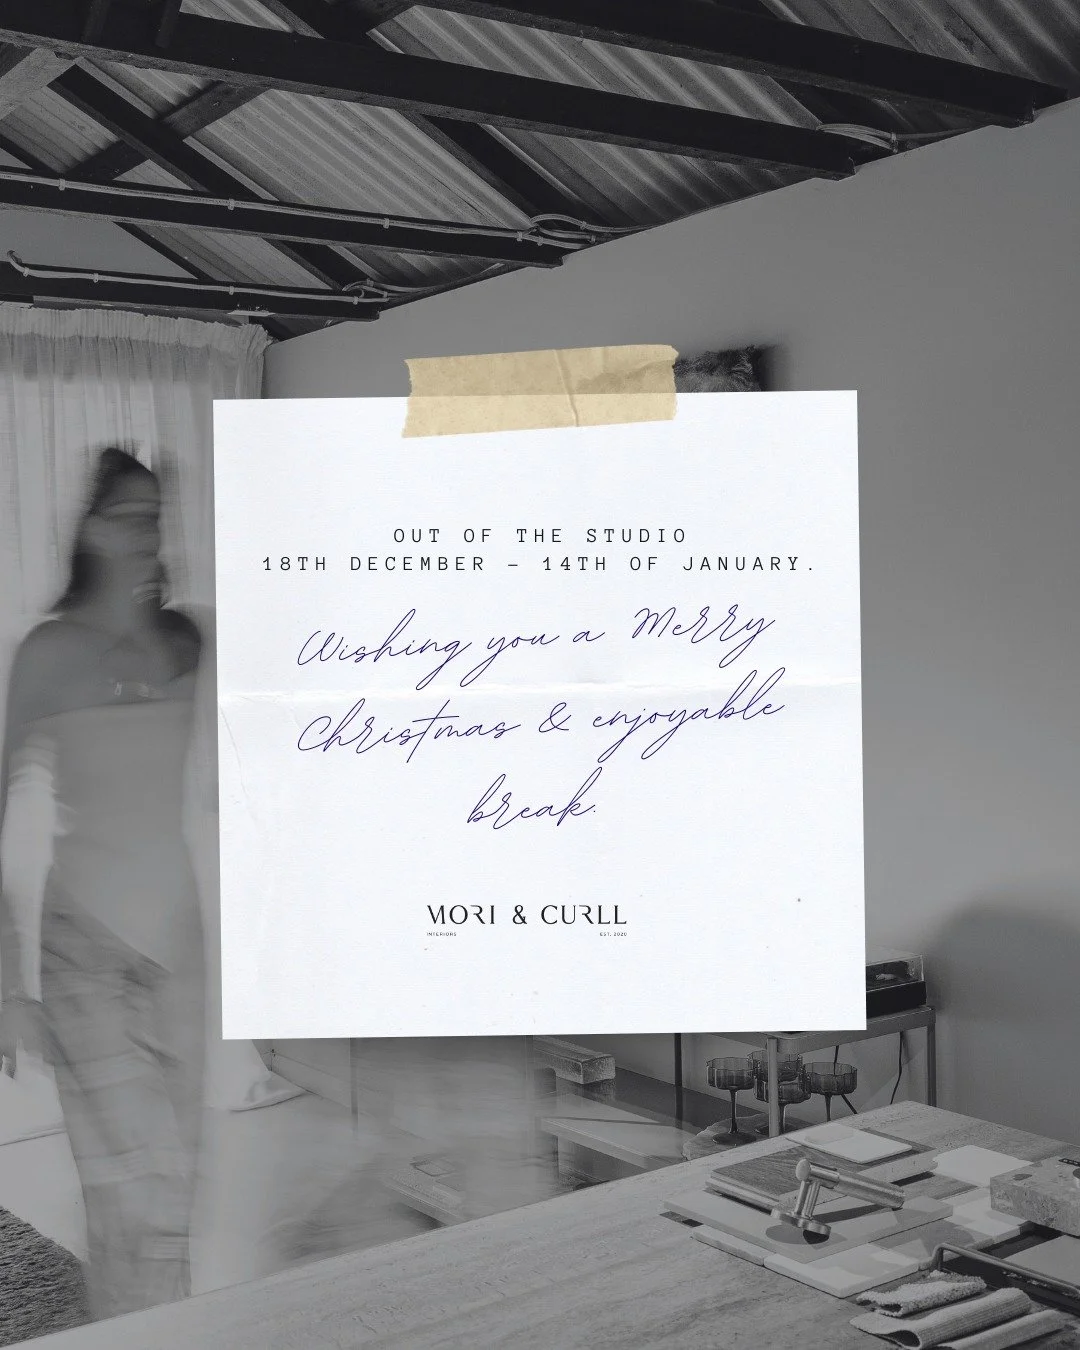 OUT OF THE STUDIO
18TH DECEMBER – 14TH OF JANUARY.
Wishing you a Merry
Christmas & enjoyable
break.
MORI & CURLL
INTERIORS EST. 2020